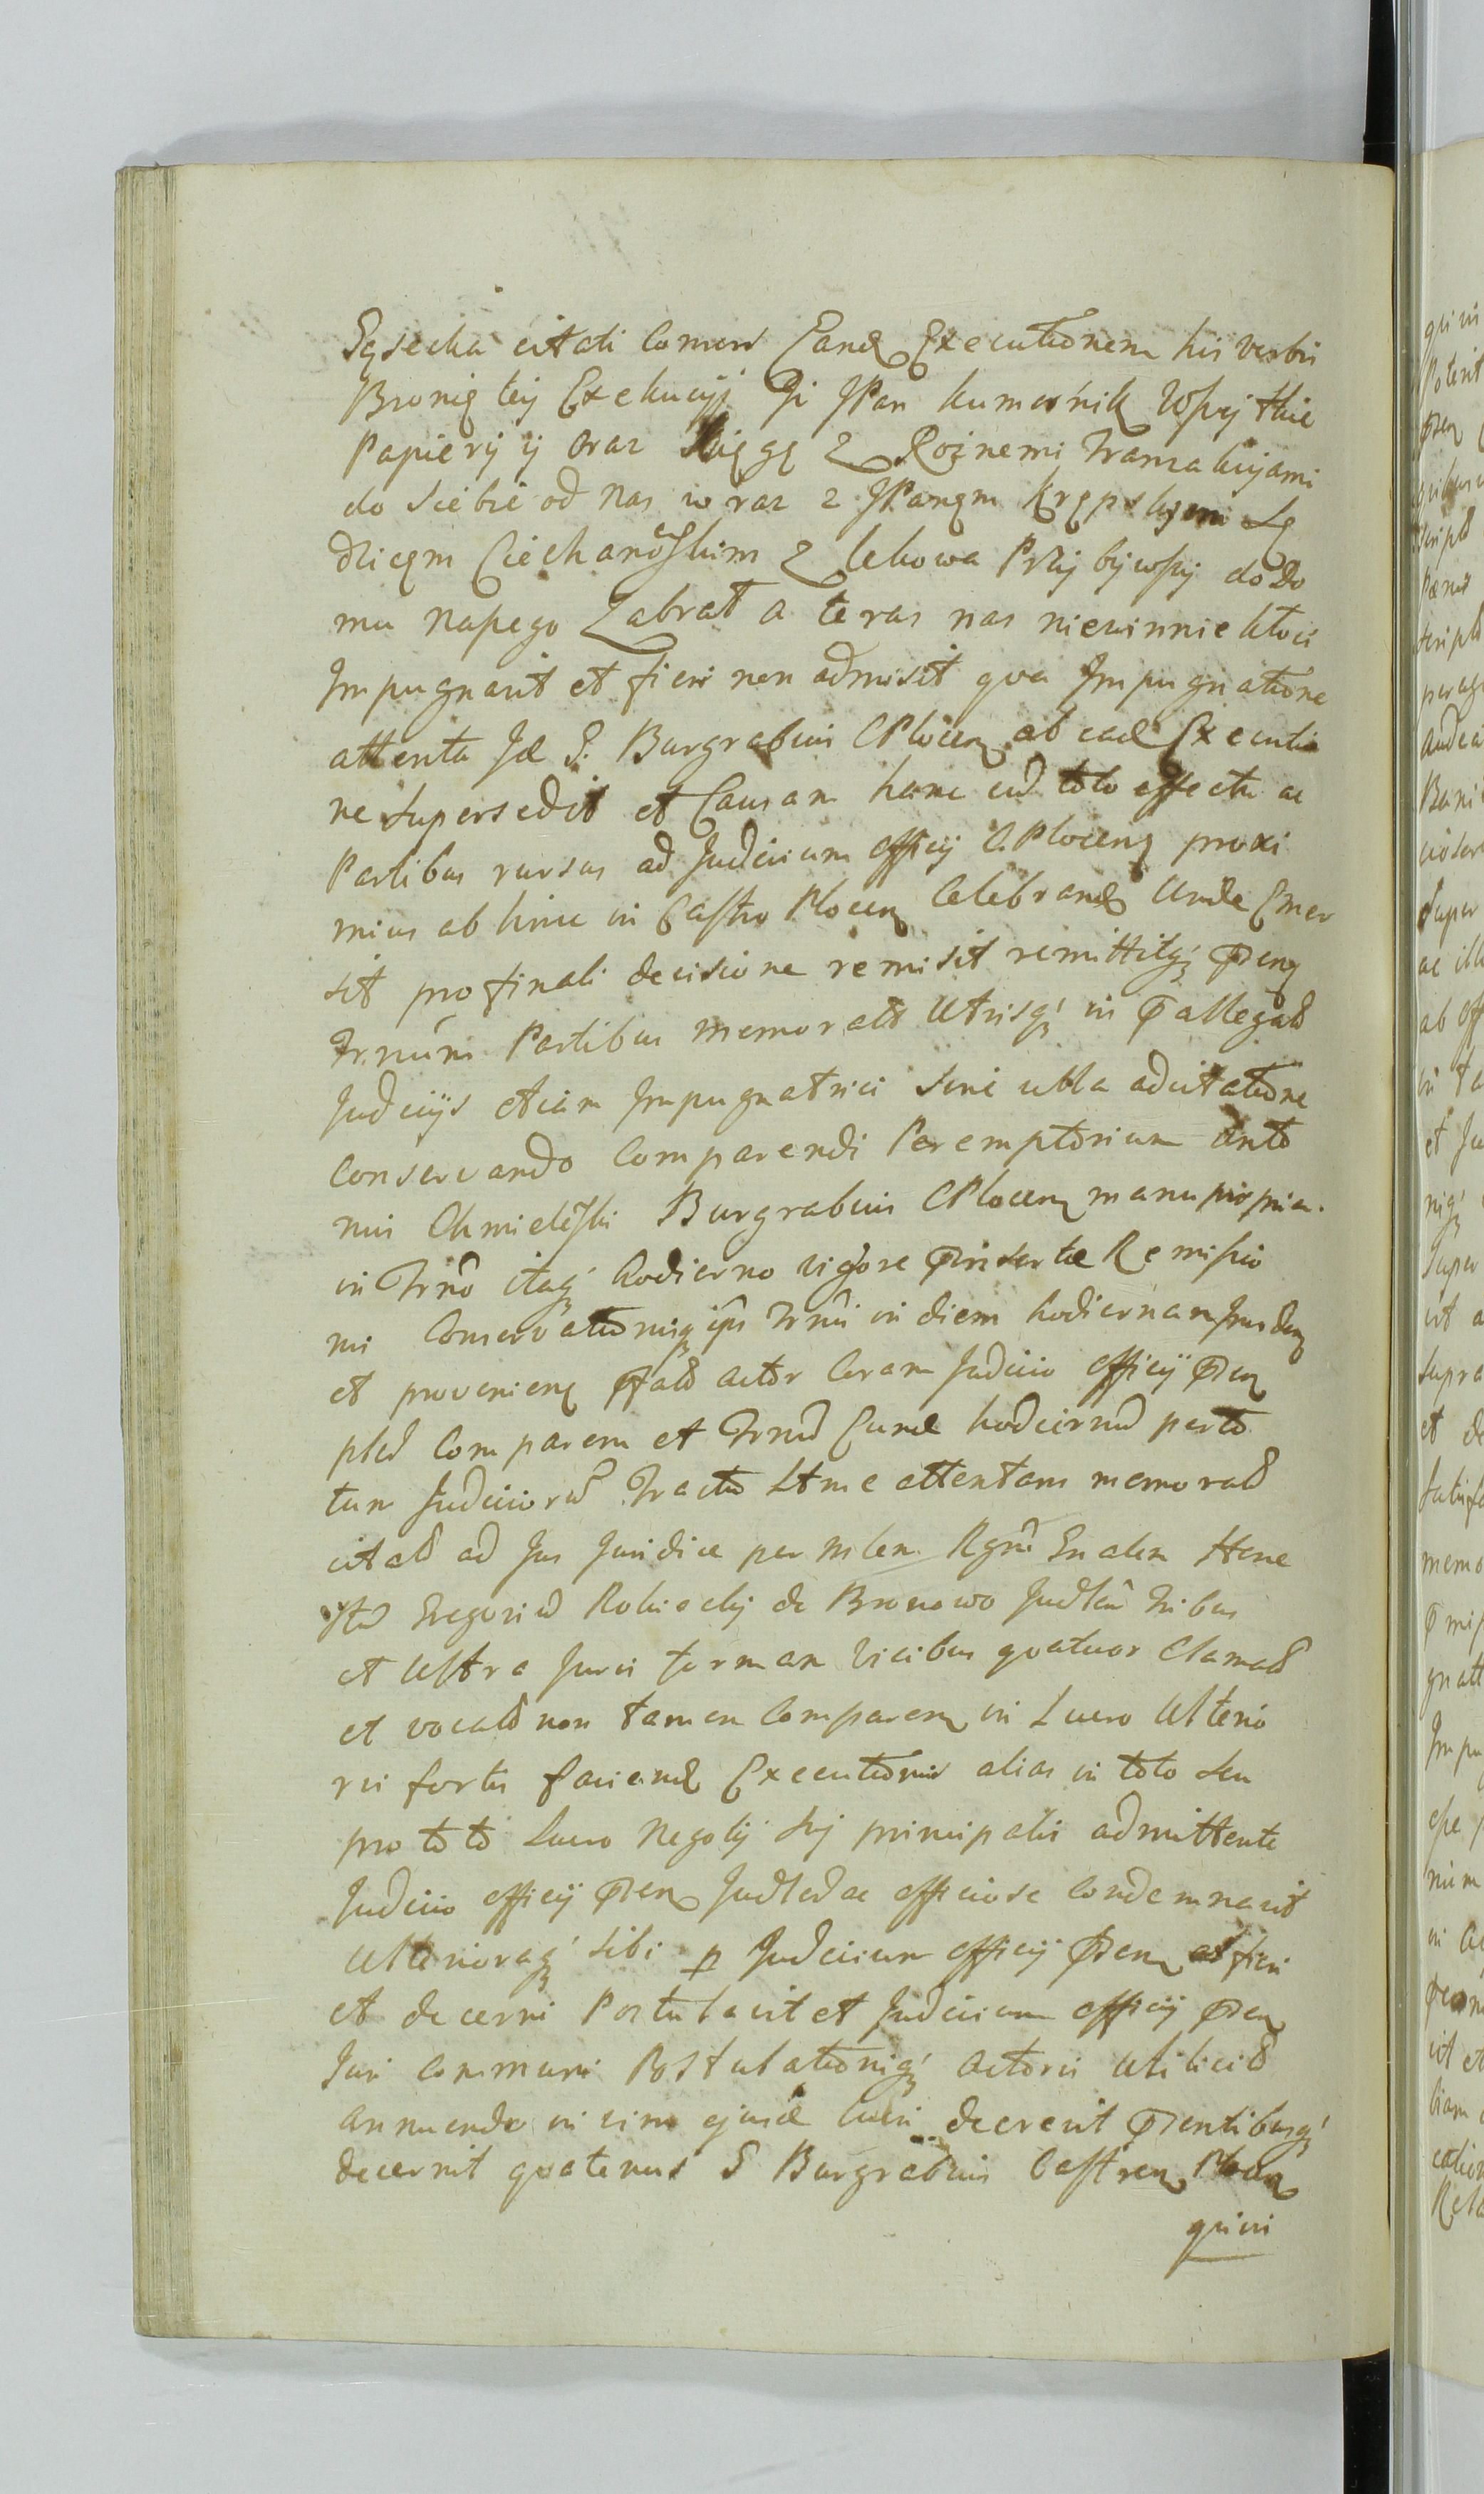 citati Comen Eand Executionem his verbis
Bronię tey Exekucyi Ji JPan kumornik Wszytkie
Papiery y oraz Xięgę z Roznemi Tranzakcyiami
do siebie od nas w raz z JPanem Krępskiem Sę
dzicęm Ciechanowskim z lekowa Przybywszy do Do
mu naszego Zabrał a teras nas niewinnie kłoci
Impugnavit et fieri non admisit qva Impugnatione
attenta Id G. Burgrabius CPlocen ab ead Executio
ne supersedit et Causam hanc cu toto effectu ac
Partibus rursus ad Judicium officij CPlocens proxi
mius ab hinc in Castro Plocen Celebrand Unde Emer
sit pro finali decisione remisit remittitq́ Pren
Trnum Partibus memorats Utrisq́ in Pallegats
Judicijs etiam Impugnatrici sine ulla adcitatione
conservando Comparendi Peremptorium Anto
nius Chmielewski Burgrabius CPlocen manu propria.
in Trno itaq́ hodierno vigore Pinsertae Remissio
nis Conservationisq ips Trni in diem hodiernam
et provenien Pfats actor Coram Judicio officij Pren
ples Comparen et Trnu Eund hodiernu per to
tum Judicioru Tractu Ltme attentans memorats
citats ad Jus Juridice per mlem Rgni Gnalem Hone
stu Gregoriu de Bronowo Judlem tribus
et Ultra Juris formam vicibus quatuor Clamats
et vocats non tamen Comparen in Lucro Ulterio
ris fortis faciend Executionis alias in toto seu
pro toto Lucro Negotij sui principalis admittente
Judicio officij Pren Judled ac officiose Condemnavit
Ulterioraq́ sibi p Judicium officij Pren fieri
et decerni Postulavit et Judicium officij Pren
Juri Communi Postulationiq́ actoris
annuendo in vim ejusd Lucri decrevit Prentibusq́
decernit quatenus G Burgrabius Castren Plocen
quivi